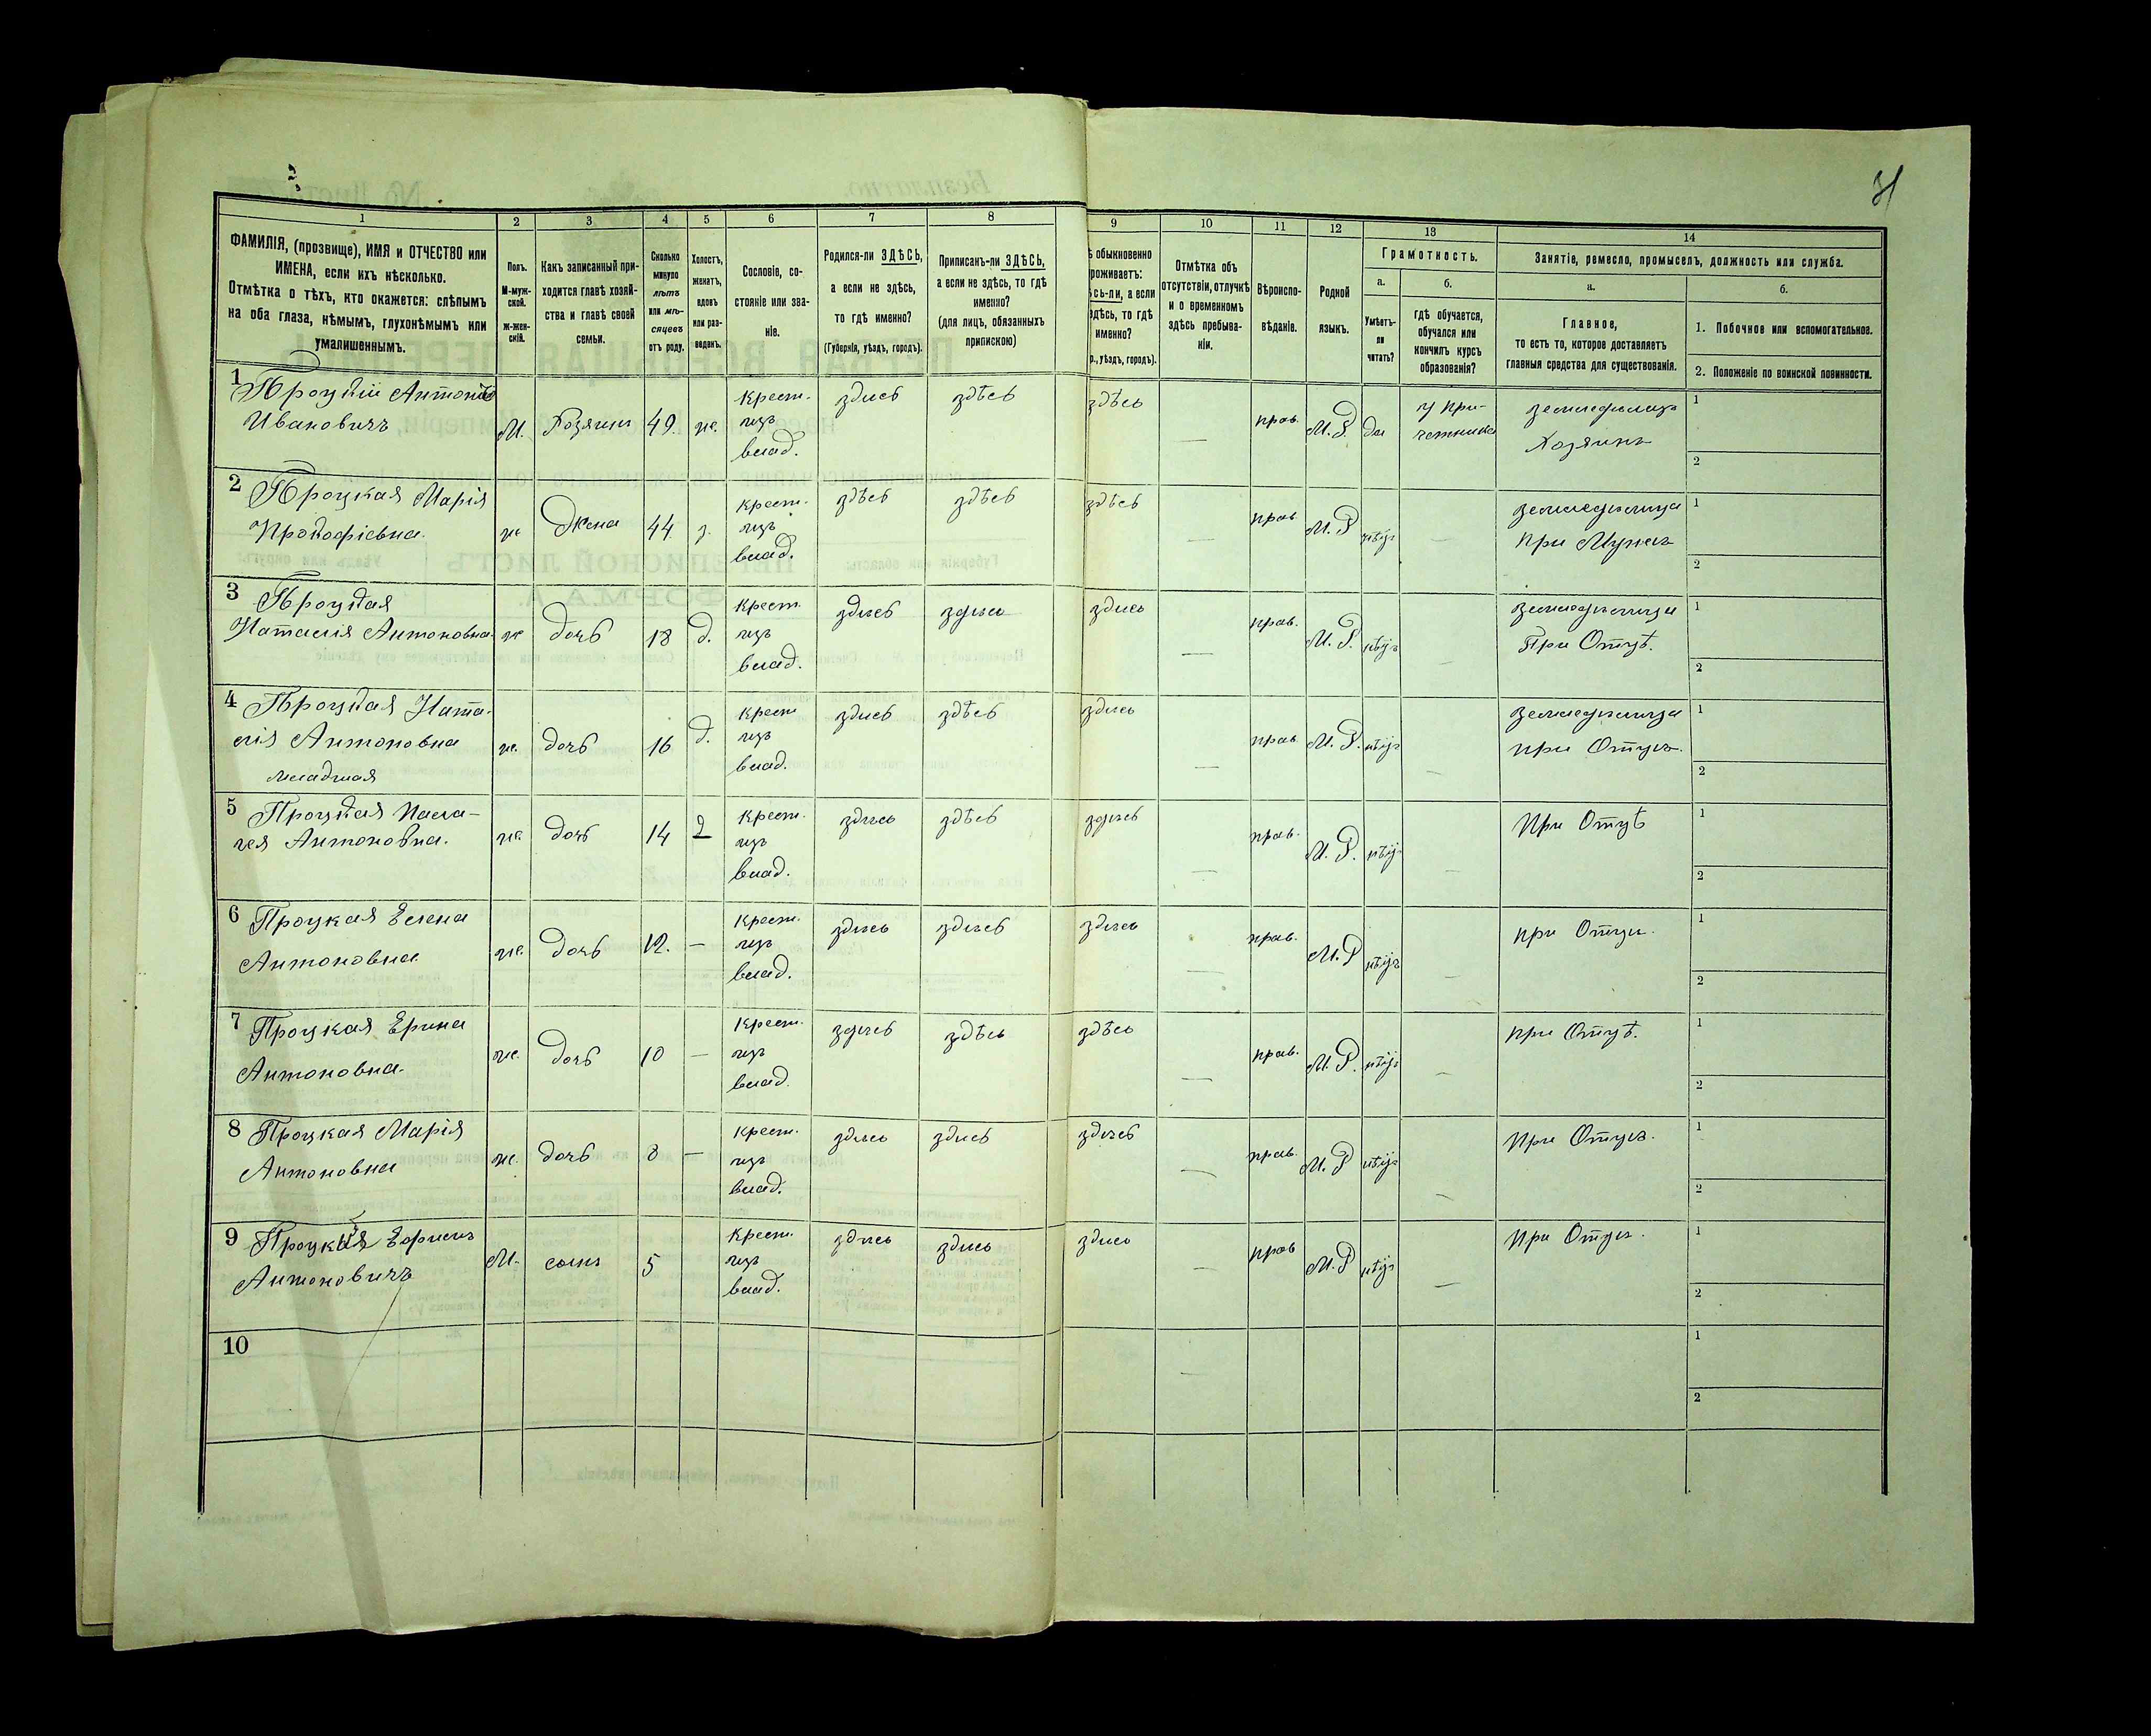 31
1
2
3
4
5
6
7
8
9
10
11
12
13
14
ФАМИЛІЯ, (прозвище), ИМЯ и ОТЧЕСТВО или
ИМЕНА, если ихъ нѣсколько.
Отмѣтка о тѣхъ, кто окажется: слѣпымъ
на оба глаза, нѣмымъ, глухонѣмымъ или
умалишеннымъ.
Полъ.
М-муж-
ской.
Ж-жен-
скій.
Какъ записанный при-
ходится главѣ хозяй-
ства и главѣ своей
семьи.
Сколько
минуло
лѣтъ
или мѣ-
сяцевъ
отъ роду.
Холостъ,
женатъ,
вдовъ
или раз-
веденъ.
Сословіе, со-
стояніе или зва-
ніе.
Родился-ли ЗДѢСЬ,
а если не здѣсь,
то гдѣ именно?
(Губернія, уѣздъ, городъ).
Приписанъ-ли ЗДѢСЬ,
а если не здѣсь, то гдѣ
именно?
(для лицъ, обязанныхъ
припискою)
ѣ обыкновенно
роживаетъ:
сь-ли, а если
здѣсь, то гдѣ
именно?
р., уѣздъ, городъ).
Отмѣтка объ
отсутствіи, отлучкѣ
и о временномъ
здѣсь пребыва-
ніи.
Вѣроиспо-
вѣданіе.
Родной
языкъ.
Грамотность.
а.
Умѣетъ-
ли
читать?
б.
гдѣ обучается,
обучался или
кончилъ курсъ
образованія?
Занятіе, ремесло, промыселъ, должность или служба.
а.
Главное,
то есть то, которое доставляетъ
главныя средства для существованія.
б.
1. Побочное или вспомогательное.
2. Положеніе по воинской повинности.
1 Процкій Антоній
Ивановичъ
М. Хозяинъ 49. же.
крест. изъ влад.
здись здѣсь здѣсь — прав. М.Р. да
у при-
четника
земледѣлецъ
Хозяинъ
1
2
2 Процкая Марія
Прокофіевна.
ж Жена 44 з.
крест. изъ влад.
здѣсь здѣсь здѣсь — прав. М.Р нѣтъ —
земледѣлица
при Мужѣ
1
2
3 Процкая
Наталія Антоновна
ж дочь 18 д.
крест. изъ влад.
здись здѣсь здись — прав. М.Р. нѣтъ —
земледѣлица
При Отцѣ.
1
2
4 Процкая Ната-
лія Антоновна
младшая
же. дочь 16 д.
крест изъ влад.
здись здѣсь здись — прав М.Р. нѣтъ —
земледѣлица
при Отцѣ.
1
2
5 Процкая Пела-
гея Антоновна.
же. дочь 14 д
крест. изъ влад.
здись здѣсь здѣсь — прав. М.Р. нѣтъ —
При Отцѣ
1
2
6 Процкая Елена
Антоновна
же. дочь 12. —
крест. изъ влад.
здись здись здись прав. М.Р нѣтъ —
при Отцѣ.
1
2
7 Процкая Ерина
Антоновна.
же. дочь 10 —
крест. изъ влад.
здѣсь здѣсь здѣсь — прав. М.Р. нѣтъ —
при Отцѣ.
1
2
8 Процкая Марія
Антоновна
же. дочь 8 —
крест. изъ влад.
здись здись здись — прав. М.Р нѣтъ —
При Отцѣ.
1
2
9 Процкій
Антоновичъ
М. сынъ 5
крест. изъ влад.
здись здись здись — прав М.Р нѣтъ —
При Отцѣ.
1
2
10
—
1
2